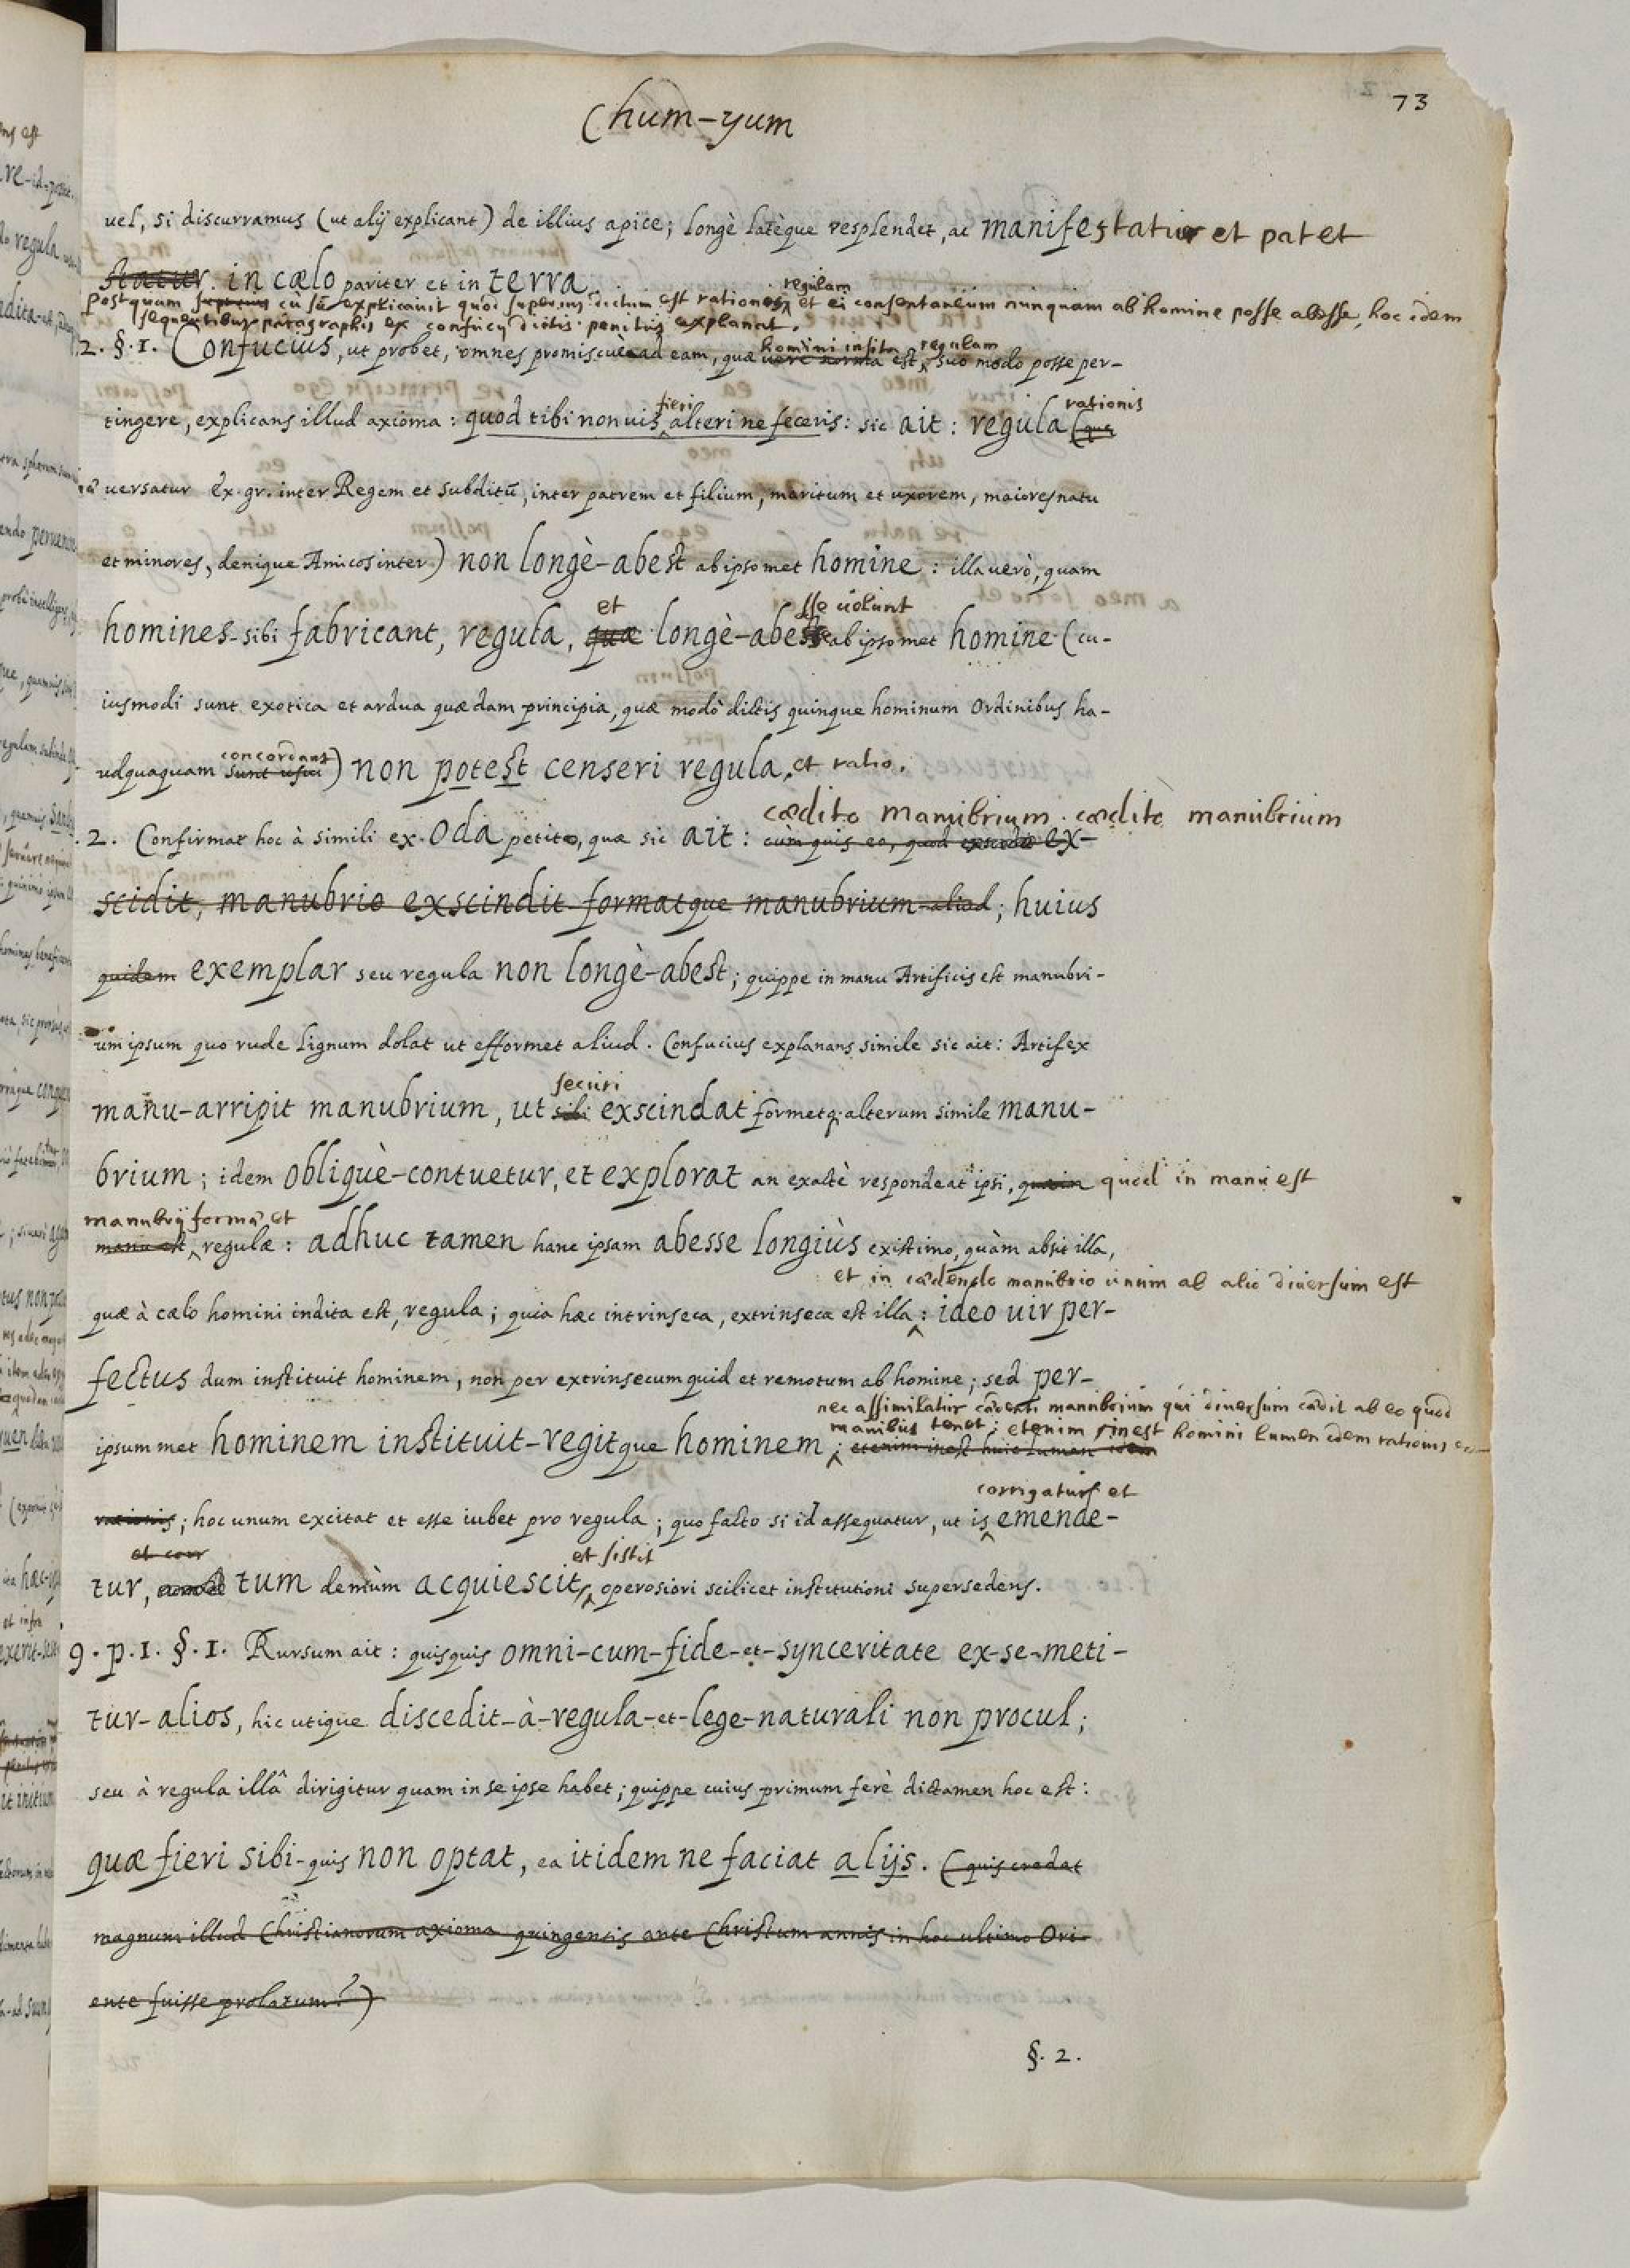 73
Chum-yum
uel, si discurramus (ut alij explicant) de illius apice; longè latèque resplendet, ac manifestatur et patet
statur. in cælo pariter et in terra.
regulam
postquam supremus cù sē explicauit quòd superius dictum est rationem et ei consentaneum nunquam ab homine posse abesse, hoc idem
sequentibus paragraphis ex confucij dictis penitùs explanat.
homini insita regulam
2. §. 1. Confucius, ut probet, omnes promiscuè ad eam, quæ uere norma est, suo modo posse per-
fieri rationis
tingere, explicans illud axioma: quod tibi non uis alteri ne feceris: sic ait: regula (quæ
uersatur ex. gr. inter Regem et subditū, inter patrem et filium, maritum et uxorem, maiores natu
et minores, denique Amicos inter) non longè-abest ab ipsomet homine: illa uerò, quam
et sse uolunt
homines-sibi fabricant, regula, quæ longè-abesse ab ipsomet homine (cu-
iusmodi sunt exotica et ardua quædam principia, quæ modò dictis quinque hominum Ordinibus ha-
concordant
udquaquam sunt usui) non potest censeri regula, et ratio.
cædito manubrium. cædito manubrium
2. Confirmat hoc à simili ex Oda petito, quæ sic ait: cùm quis eo, quod exscidit ex-
scidit, manubrio exscindit formatque manubrium aliud; huius
quidem exemplar seu regula non longè-abest; quippe in manu Artificis est manubri-
um ipsum quo rude lignum dolat ut efformet aliud. Confucius explanans simile sic ait: Artifex
securi
manu-arripit manubrium, ut sibi exscindat formetq; alterum simile manu-
brium; idem obliquè-contuetur, et explorat an exactè respondeat ipsi, quam quod in manu est
manubrij formæ et
manu est regulæ: adhuc tamen hanc ipsam abesse longiùs existimo, quàm absit illa,
et in cædendo manubrio unum ab alio diuersum est
quæ à cælo homini indita est, regula; quia hæc intrinseca, extrinseca est illa: ideo uir per-
fectus dum instituit hominem, non per extrinsecum quid et remotum ab homine; sed per-
nec assimilatur cædenti manubrium qui diuersum cædit ab eo quod
manibus tenet; etenim inest homini lumen idem rationis
ipsummet hominem instituit-regitque hominem; etenim inest huic lumen idem
corrigatur et
rationis; hoc unum excitat et esse iubet pro regula; quo facto si id assequatur, ut is emende-
et corr et sistit
tur, tum demùm acquiescit, operosiori scilicet institutioni supersedens.
9. p. 1. §. 1. Rursum ait: quisquis omni-cum-fide-et-synceritate ex-se-meti-
tur-alios, hic utique discedit-à-regula-et-lege-naturali non procul;
seu à regula illâ dirigitur quam in se ipse habet; quippe cuius primum ferè dictamen hoc est:
quæ fieri sibi-quis non optat, ea itidem ne faciat alijs. (quis credat
magnum illud Christianorum axioma quingentis ante Christum annis in hoc ultimo Ori-
ente fuisse prolatum?)
§. 2.